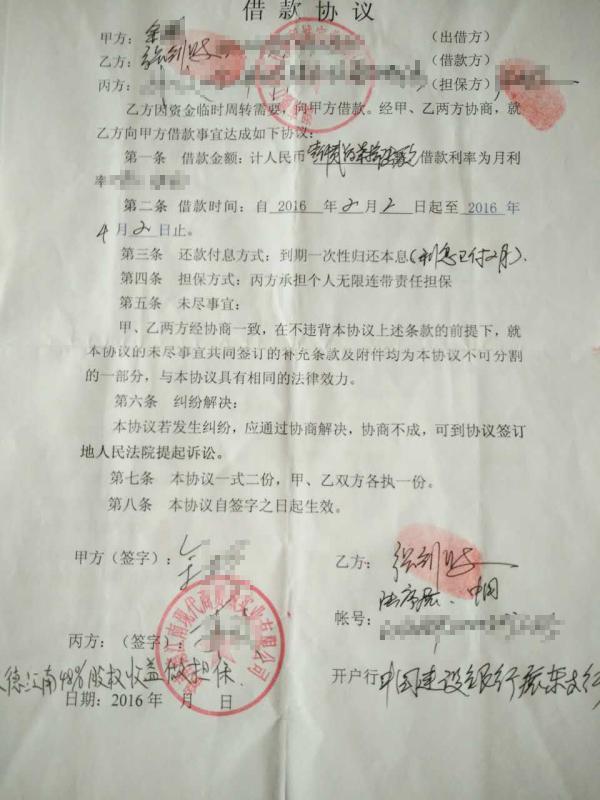 借款协议
甲方：余 （出借方）
乙方：张剑 （借款方）
丙方： （担保方）
乙方因资金临时周转需要，向甲方借款。经甲、乙两方协商，就
乙方向甲方借款事宜达成如下协议：
第一条 借款金额：计人民币 借款利率为月利
率
第二条 借款时间：自 2016 年2月2日起至 2016 年
4月2日止。
第三条 还款付息方式：到期一次性归还本息(利息已付2月).
第四条 担保方式：丙方承担个人无限连带责任担保
第五条 未尽事宜：
甲、乙两方经协商一致，在不违背本协议上述条款的前提下，就
本协议的未尽事宜共同签订的补充条款及附件均为本协议不可分割
的一部分，与本协议具有相同的法律效力。
第六条 纠纷解决：
本协议若发生纠纷，应通过协商解决，协商不成，可到协议签订
地人民法院提起诉讼。
第七条 本协议一式二份，甲、乙双方各执一份。
第八条 本协议自签字之日起生效。
甲方（签字）：
乙方：张剑
帐号：
丙方：（签字）：
江南现代商 实业有限公司
德江南49%股权收益做担保
开户行 中国建设银行振东支行
日期：2016 年 月 日